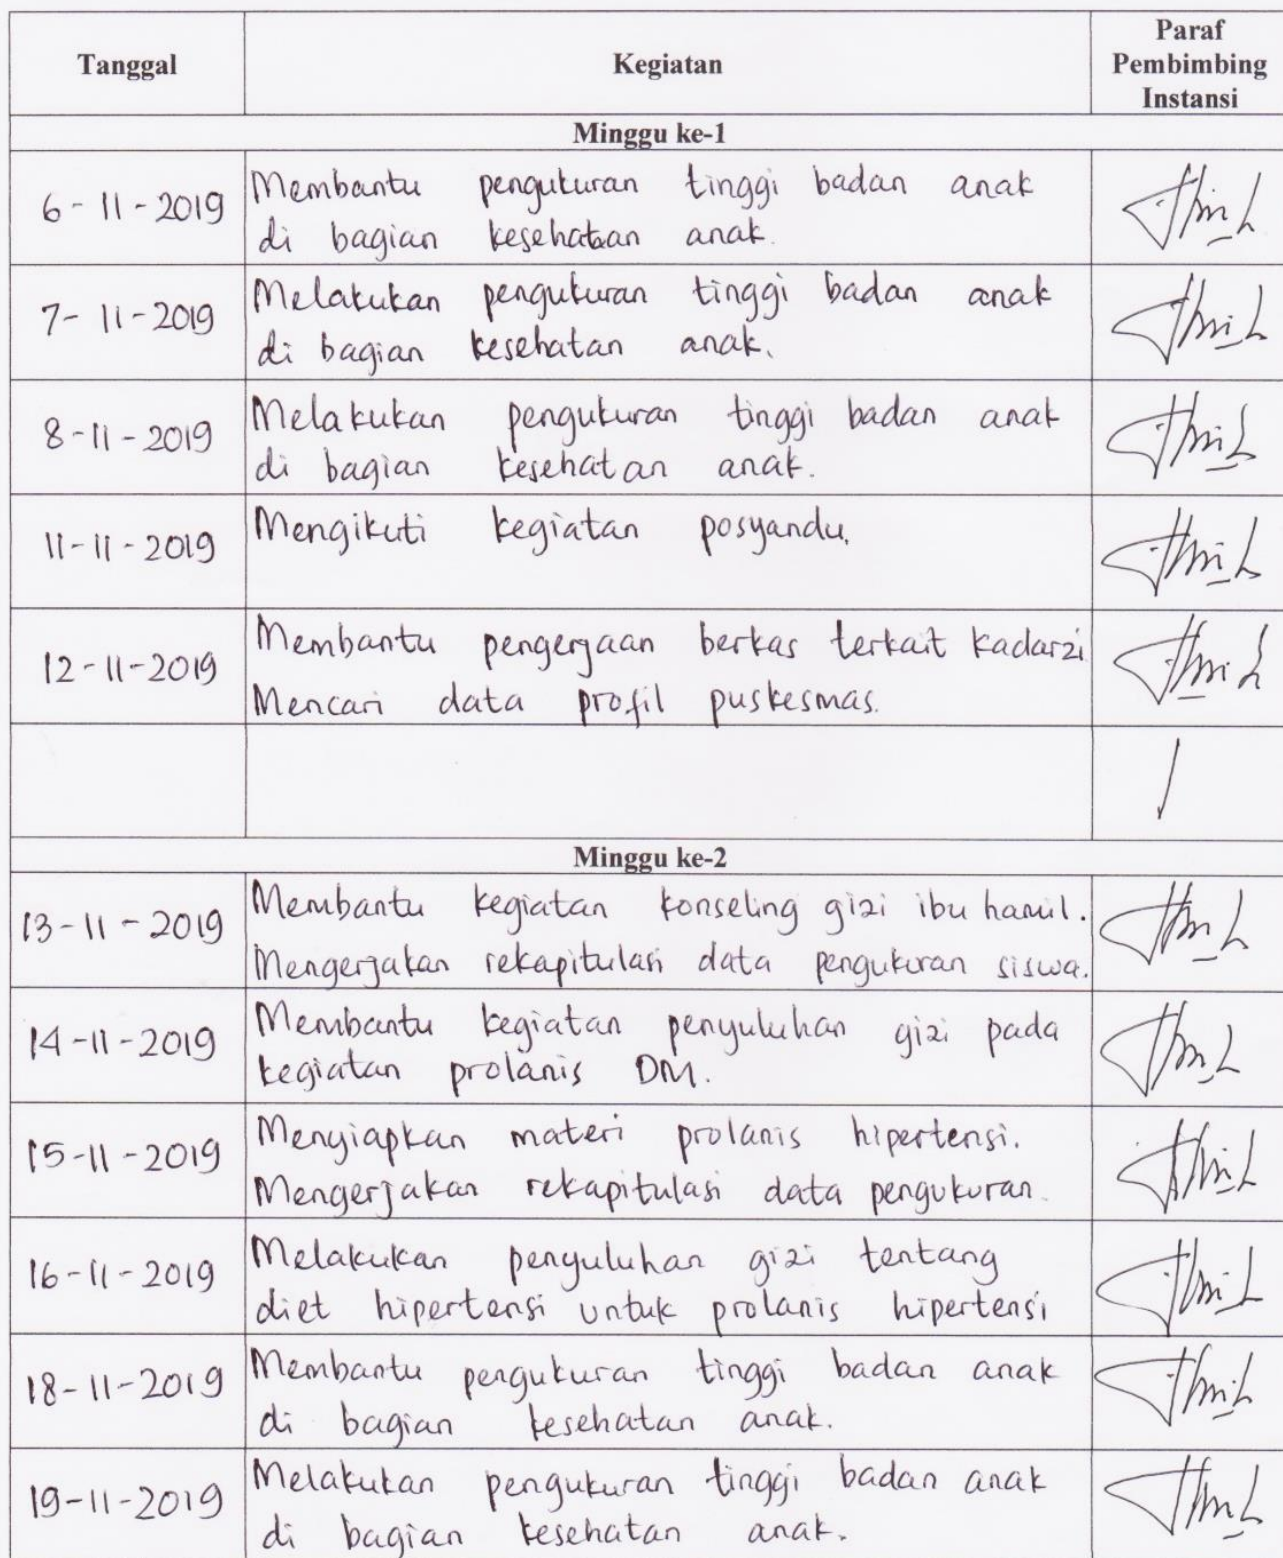 Tanggal
Kegiatan
Paraf
Pembimbing
Instansi
Minggu ke-1
6-11-2019
Membantu pengukuran tinggi badan anak
di bagian kesehatan anak.
7-11-2019
Melakukan pengukuran tinggi badan anak
di bagian kesehatan anak.
8-11-2019
Melakukan pengukuran tinggi badan anak
di bagian kesehatan anak.
11-11-2019
Mengikuti kegiatan posyandu.
12-11-2019
Membantu pengerjaan berkas terkait kadarzi
Mencari data profil puskesmas.
Minggu ke-2
13-11-2019
Membantu kegiatan konseling gizi ibu hamil.
Mengerjakan rekapitulasi data pengukuran siswa.
14-11-2019
Membantu kegiatan penyuluhan gizi pada
kegiatan prolanis DM.
15-11-2019
Menyiapkan materi prolanis hipertensi.
Mengerjakan rekapitulasi data pengukuran.
16-11-2019
Melakukan penyuluhan gizi tentang
diet hipertensi untuk prolanis hipertensi
18-11-2019
Membantu pengukuran tinggi badan anak
di bagian kesehatan anak.
19-11-2019
Melakukan pengukuran tinggi badan anak
di bagian kesehatan anak.